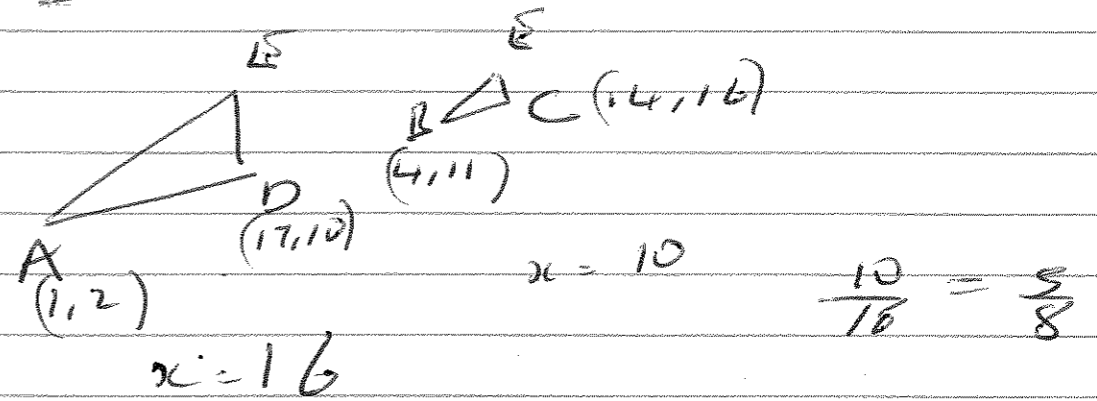 E E
B C (14, 16)
(4, 11)
D
(17, 10)
A
(1, 2)
x = 10 10/16 = 5/8
x = 16